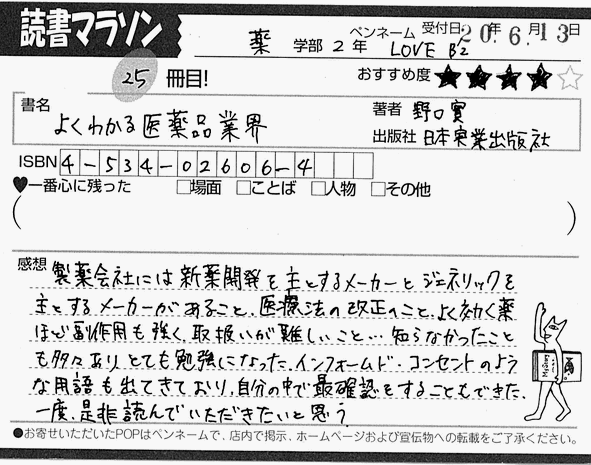 読書マラソン
薬 学部 2 年 ペンネーム LOVE B'z 受付日 20年 6.月 13日
25 冊目!
おすすめ度 ★★★★☆
書名 よくわかる医薬品業界
著者 野口實
出版社 日本実業出版社
ISBN 4-534-02606-4
♥一番心に残った □場面 □ことば □人物 □その他
( )
感想 製薬会社には新薬開発を主とするメーカーとジェネリックを
主とするメーカーがあること、医療法の改正のこと、よく効く薬
ほど副作用も強く、取扱いが難しいこと… 知らなかったこと
も多々あり、とても勉強になった。インフォームド・コンセントのよう
な用語も出てきており、自分の中で最確認をすることもできた。
一度、是非読んでいただきたいと思う。
●お寄せいただいたPOPはペンネームで、店内で掲示、ホームページおよび宣伝物への転載をご了承ください。